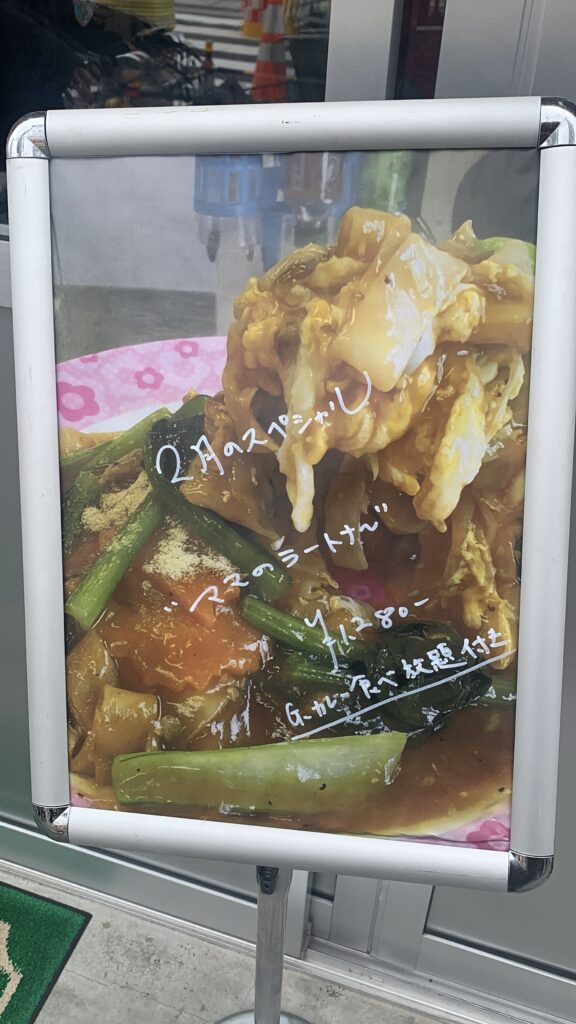 2月のスペシャル
"ママのラートナー"
¥1.280-
G.カレー食べ放題付き